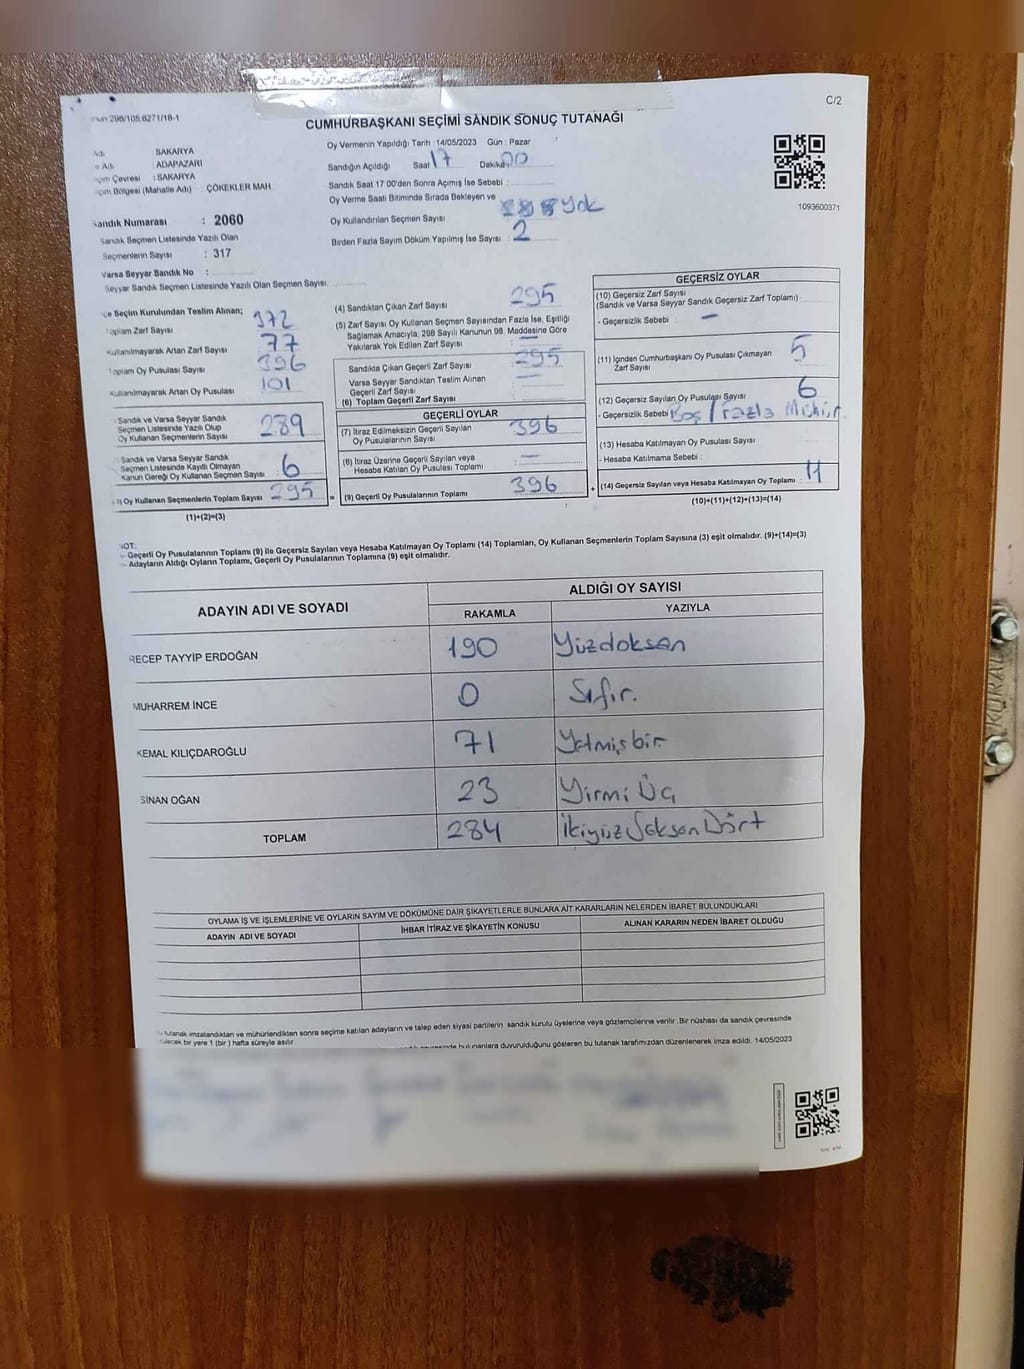 C/2
CUMHURBAŞKANI SEÇİMİ SANDIK SONUÇ TUTANAĞI
Oy Vermenin Yapıldığı Tarih : 14/05/2023 Gün : Pazar
: SAKARYA
: ADAPAZARI
: SAKARYA
(Mahalle Adı) : ÇÖKEKLER MAH
Sandığın Açıldığı Saat 17 Dakika 00
Sandık Saat 17:00'den Sonra Açımış İse Sebebi :
Oy Verme Saati Bitiminde Sırada Bekleyen ve
Oy Kullandırılan Seçmen Sayısı Yok
Birden Fazla Sayım Döküm Yapılmış İse Sayısı : 2
1093600371
Sandık Numarası : 2060
Sandık Seçmen Listesinde Yazılı Olan
Seçmenlerin Sayısı : 317
Varsa Seyyar Sandık No :
Seyyar Sandık Seçmen Listesinde Yazılı Olan Seçmen Sayısı:
Seçim Kurulundan Teslim Alınan;
Toplam Zarf Sayısı 372
Kullanılmayarak Artan Zarf Sayısı 77
Toplam Oy Pusulası Sayısı 396
Kullanılmayarak Artan Oy Pusulası 101
Sandık ve Varsa Seyyar Sandık
Seçmen Listesinde Yazılı Olup
Oy Kullanan Seçmenlerin Sayısı 289
Sandık ve Varsa Seyyar Sandık
Seçmen Listesinde Kayıtlı Olmayan
Kanun Gereği Oy Kullanan Seçmen Sayısı 6
Oy Kullanan Seçmenlerin Toplam Sayısı 295 =
(1)+(2)=(3)
(4) Sandıktan Çıkan Zarf Sayısı 295
(5) Zarf Sayısı Oy Kullanan Seçmen Sayısından Fazla İse, Eşitliği
Sağlamak Amacıyla; 298 Sayılı Kanunun 98. Maddesine Göre
Yakılarak Yok Edilen Zarf Sayısı : —
Sandıkta Çıkan Geçerli Zarf Sayısı : 295
Varsa Seyyar Sandıktan Teslim Alınan
Geçerli Zarf Sayısı : —
(6) Toplam Geçerli Zarf Sayısı :
GEÇERLİ OYLAR
(7) İtiraz Edilmeksizin Geçerli Sayılan
Oy Pusulalarının Sayısı 396
(8) İtiraz Üzerine Geçerli Sayılan veya
Hesaba Katılan Oy Pusulası Toplamı —
(9) Geçerli Oy Pusulalarının Toplamı 396 +
GEÇERSİZ OYLAR
(10) Geçersiz Zarf Sayısı
(Sandık ve Varsa Seyyar Sandık Geçersiz Zarf Toplamı) :
- Geçersizlik Sebebi : —
(11) İçinden Cumhurbaşkanı Oy Pusulası Çıkmayan
Zarf Sayısı 5
(12) Geçersiz Sayılan Oy Pusulası Sayısı 6
- Geçersizlik Sebebi Boş / Fazla Mühür.
(13) Hesaba Katılmayan Oy Pusulası Sayısı :
- Hesaba Katılmama Sebebi :
(14) Geçersiz Sayılan veya Hesaba Katılmayan Oy Toplamı : 11
(10)+(11)+(12)+(13)=(14)
NOT:
- Geçerli Oy Pusulalarının Toplamı (9) ile Geçersiz Sayılan veya Hesaba Katılmayan Oy Toplamı (14) Toplamları, Oy Kullanan Seçmenlerin Toplam Sayısına (3) eşit olmalıdır. (9)+(14)=(3)
- Adayların Aldığı Oyların Toplamı, Geçerli Oy Pusulalarının Toplamına (9) eşit olmalıdır.
ADAYIN ADI VE SOYADI ALDIĞI OY SAYISI
RAKAMLA YAZIYLA
RECEP TAYYİP ERDOĞAN 190 Yüzdoksan
MUHARREM İNCE 0 Sıfır.
KEMAL KILIÇDAROĞLU 71 Yetmişbir
SİNAN OĞAN 23 Yirmi Üç
TOPLAM 284 İkiyüz Seksen Dört
OYLAMA İŞ VE İŞLEMLERİNE VE OYLARIN SAYIM VE DÖKÜMÜNE DAİR ŞİKAYETLERLE BUNLARA AİT KARARLARIN NELERDEN İBARET BULUNDUKLARI
ADAYIN ADI VE SOYADI İHBAR İTİRAZ VE ŞİKAYETİN KONUSU ALINAN KARARIN NEDEN İBARET OLDUĞU
tutanak imzalandıktan ve mühürlendikten sonra seçime katılan adayların ve talep eden siyasi partilerin sandık kurulu üyelerine veya gözlemcilerine verilir. Bir nüshası da sandık çevresinde
bir yere 1 (bir) hafta süreyle asılır.
bulunanlara duyurulduğunu gösteren bu tutanak tarafımızdan düzenlenerek imza edildi. 14/05/2023